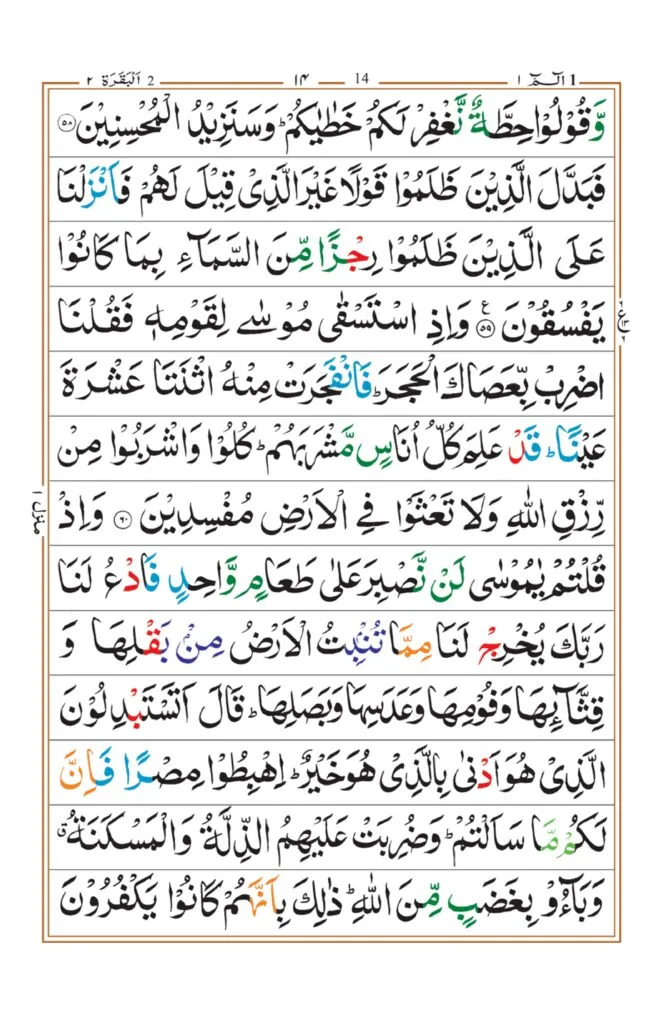 الٓمّٓ ١ 1 14 ١٤ 2 اَلْبَقَرَة ٢
وَّقُوْلُوْا حِطَّةٌ نَّغْفِرْ لَكُمْ خَطٰيٰكُمْ ؕ وَسَنَزِيْدُ الْمُحْسِنِيْنَ ﴿۵۸﴾
فَبَدَّلَ الَّذِيْنَ ظَلَمُوْا قَوْلًا غَيْرَ الَّذِىْ قِيْلَ لَهُمْ فَاَنْزَلْنَا
عَلَى الَّذِيْنَ ظَلَمُوْا رِجْزًا مِّنَ السَّمَآءِ بِمَا كَانُوْا
يَفْسُقُوْنَ ﴿۵۹﴾ ع وَاِذِ اسْتَسْقٰى مُوْسٰى لِقَوْمِهٖ فَقُلْنَا
اضْرِبْ بِّعَصَاكَ الْحَجَرَ ؕ فَانْفَجَرَتْ مِنْهُ اثْنَتَا عَشْرَةَ
عَيْنًا ؕ قَدْ عَلِمَ كُلُّ اُنَاسٍ مَّشْرَبَهُمْ ؕ كُلُوْا وَاشْرَبُوْا مِنْ
رِّزْقِ اللّٰهِ وَلَا تَعْثَوْا فِى الْاَرْضِ مُفْسِدِيْنَ ﴿۶۰﴾ وَاِذْ
قُلْتُمْ يٰمُوْسٰى لَنْ نَّصْبِرَ عَلٰى طَعَامٍ وَّاحِدٍ فَادْعُ لَنَا
رَبَّكَ يُخْرِجْ لَنَا مِمَّا تُنْۢبِتُ الْاَرْضُ مِنْۢ بَقْلِهَا وَ
قِثَّآئِهَا وَفُوْمِهَا وَعَدَسِهَا وَبَصَلِهَا ؕ قَالَ اَتَسْتَبْدِلُوْنَ
الَّذِىْ هُوَ اَدْنٰى بِالَّذِىْ هُوَ خَيْرٌ ؕ اِهْبِطُوْا مِصْرًا فَاِنَّ
لَكُمْ مَّا سَاَلْتُمْ ؕ وَضُرِبَتْ عَلَيْهِمُ الذِّلَّةُ وَالْمَسْكَنَةُ ۗ
وَبَآءُوْ بِغَضَبٍ مِّنَ اللّٰهِ ؕ ذٰلِكَ بِاَنَّهُمْ كَانُوْا يَكْفُرُوْنَ
منزل ١